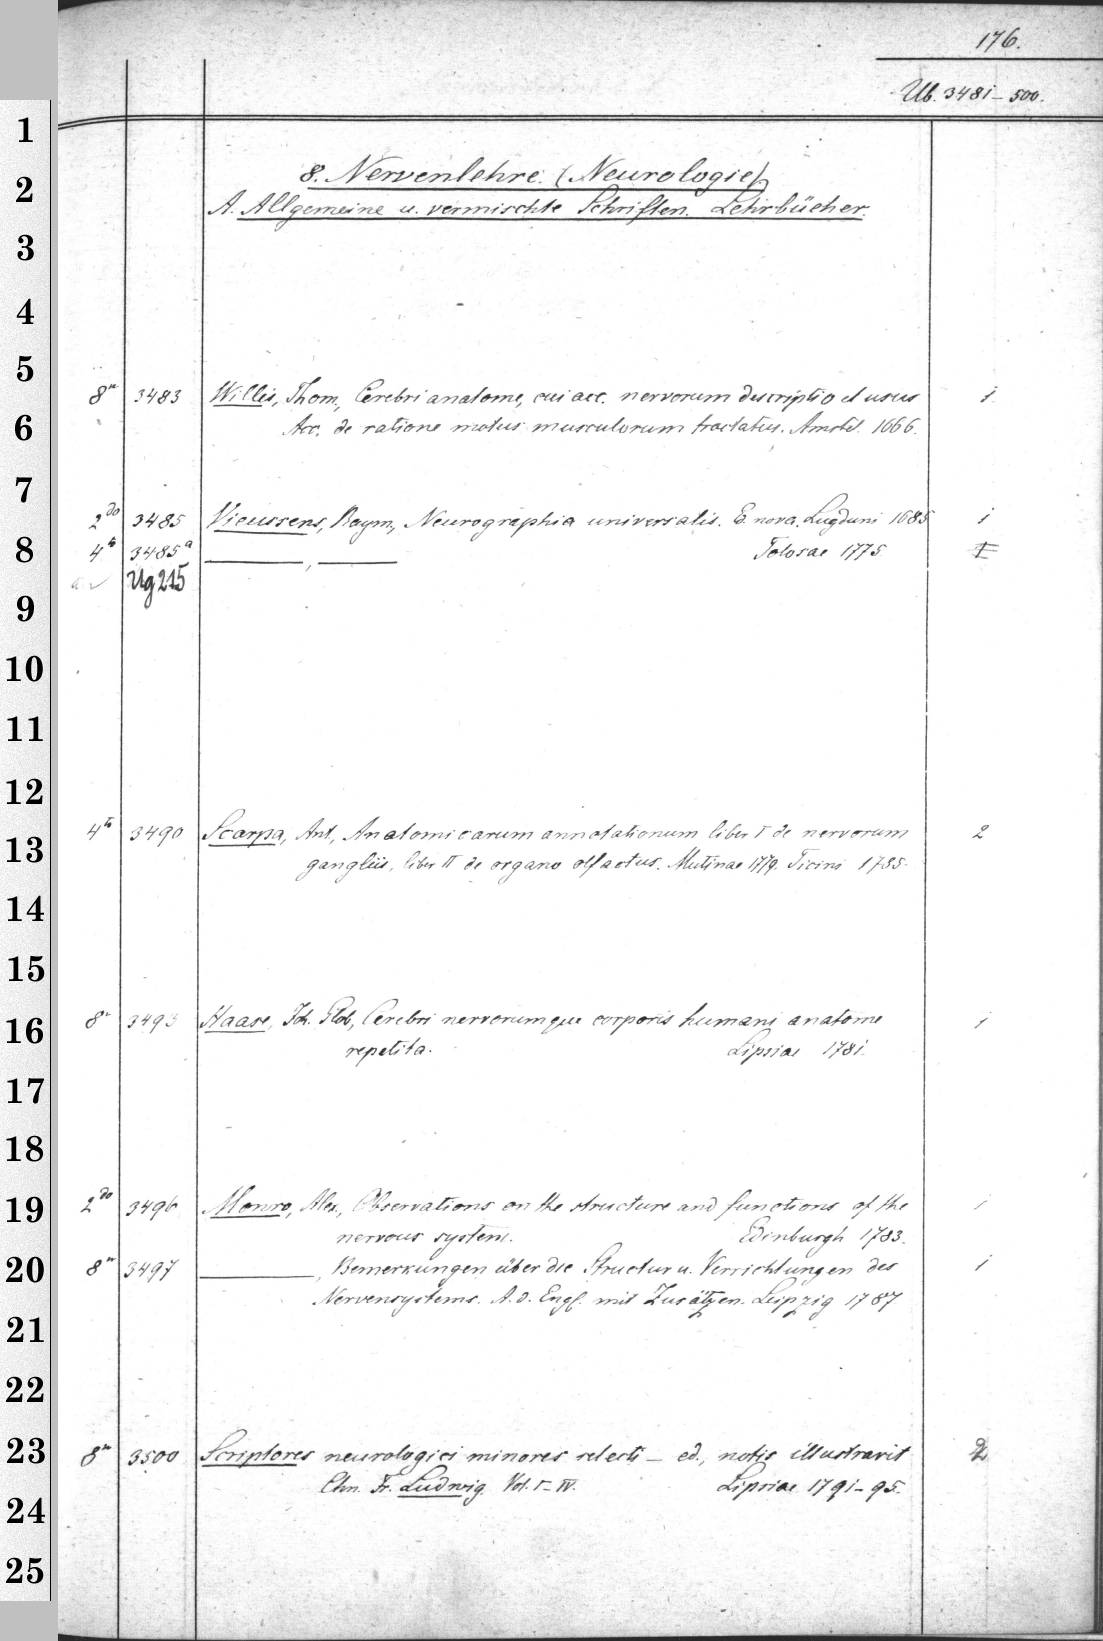 176.
Ub. 3481-500.
8. Nervenlehre. (Neurologie)
A. Allgemeine u. vermischte Schriften. Lehrbücher.
8° 3483 Willis, Thom., Cerebri anatome, cui acc. nervorum descriptio et usus 1.
Acc. de ratione motus musculorum tractatus. Amstel. 1666.
2do 3485 Vieussens, Raym., Neurographia universalis. E. nova. Lugduni 1685 1
4to 3485a ———, ——— Tolosae 1775 1
Ug 215
4to 3490 Scarpa, Ant., Anatomicarum annotationum liber I de nervorum 2
gangliis, liber II de organo olfactus. Mutinae 1779. Ticini 1785.
8° 3493 Haase, Joh. Glob, Cerebri nervorumque corporis humani anatome 1
repetita. Lipsiae 1781.
2do 3496 Monro, Alex., Observations on the structure and functions of the 1
nervous system. Edinburgh 1783.
8° 3497 ———, Bemerkungen über die Structur u. Verrichtungen des 1
Nervensystems. A. d. Engl. mit Zusätzen. Leipzig 1787
8° 3500 Scriptores neurologici minores selecti — ed., notis illustravit
Chn. Fr. Ludwig. Vol. I-IV. Lipsiae 1791-95.
1
2
3
4
5
6
7
8
9
10
11
12
13
14
15
16
17
18
19
20
21
22
23
24
25